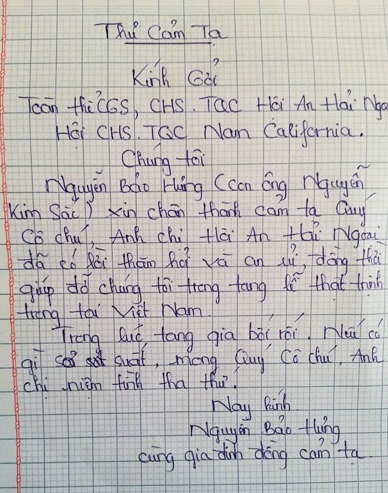 Thư Cảm Tạ
Kính Gởi
Toàn thể CGS, CHS. TQC Hội An Hải Ngoại
Hội CHS. TQC Nam California.
Chúng tôi
Nguyễn Bảo Hưng (con ông Nguyễn
Kim Sắc) xin chân thành cảm tạ Quý
Cô chú, Anh chị Hội An Hải Ngoại
đã có lời thăm hỏi và an ủi, đồng thời
giúp đỡ chúng tôi trong tang lễ thật trịnh
trọng tại Việt Nam.
Trong lúc tang gia bối rối. Nếu có
gì sơ suất, mong Quý Cô chú, Anh
chị niệm tình tha thứ.
Nay kính
Nguyễn Bảo Hưng
cùng gia đình đồng cảm tạ